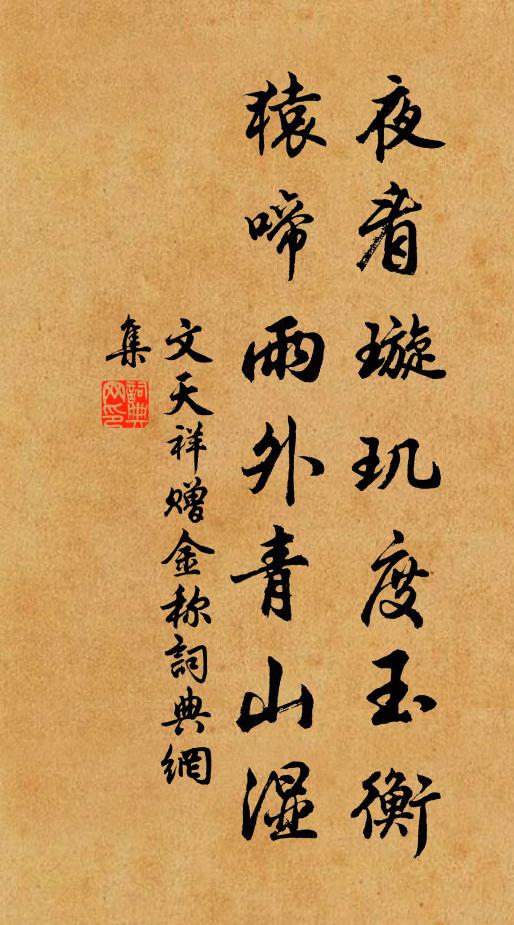 夜看璇玑度玉衡
猿啼雨外青山湿
文天祥赠金称詞典網
集
詞典
网印